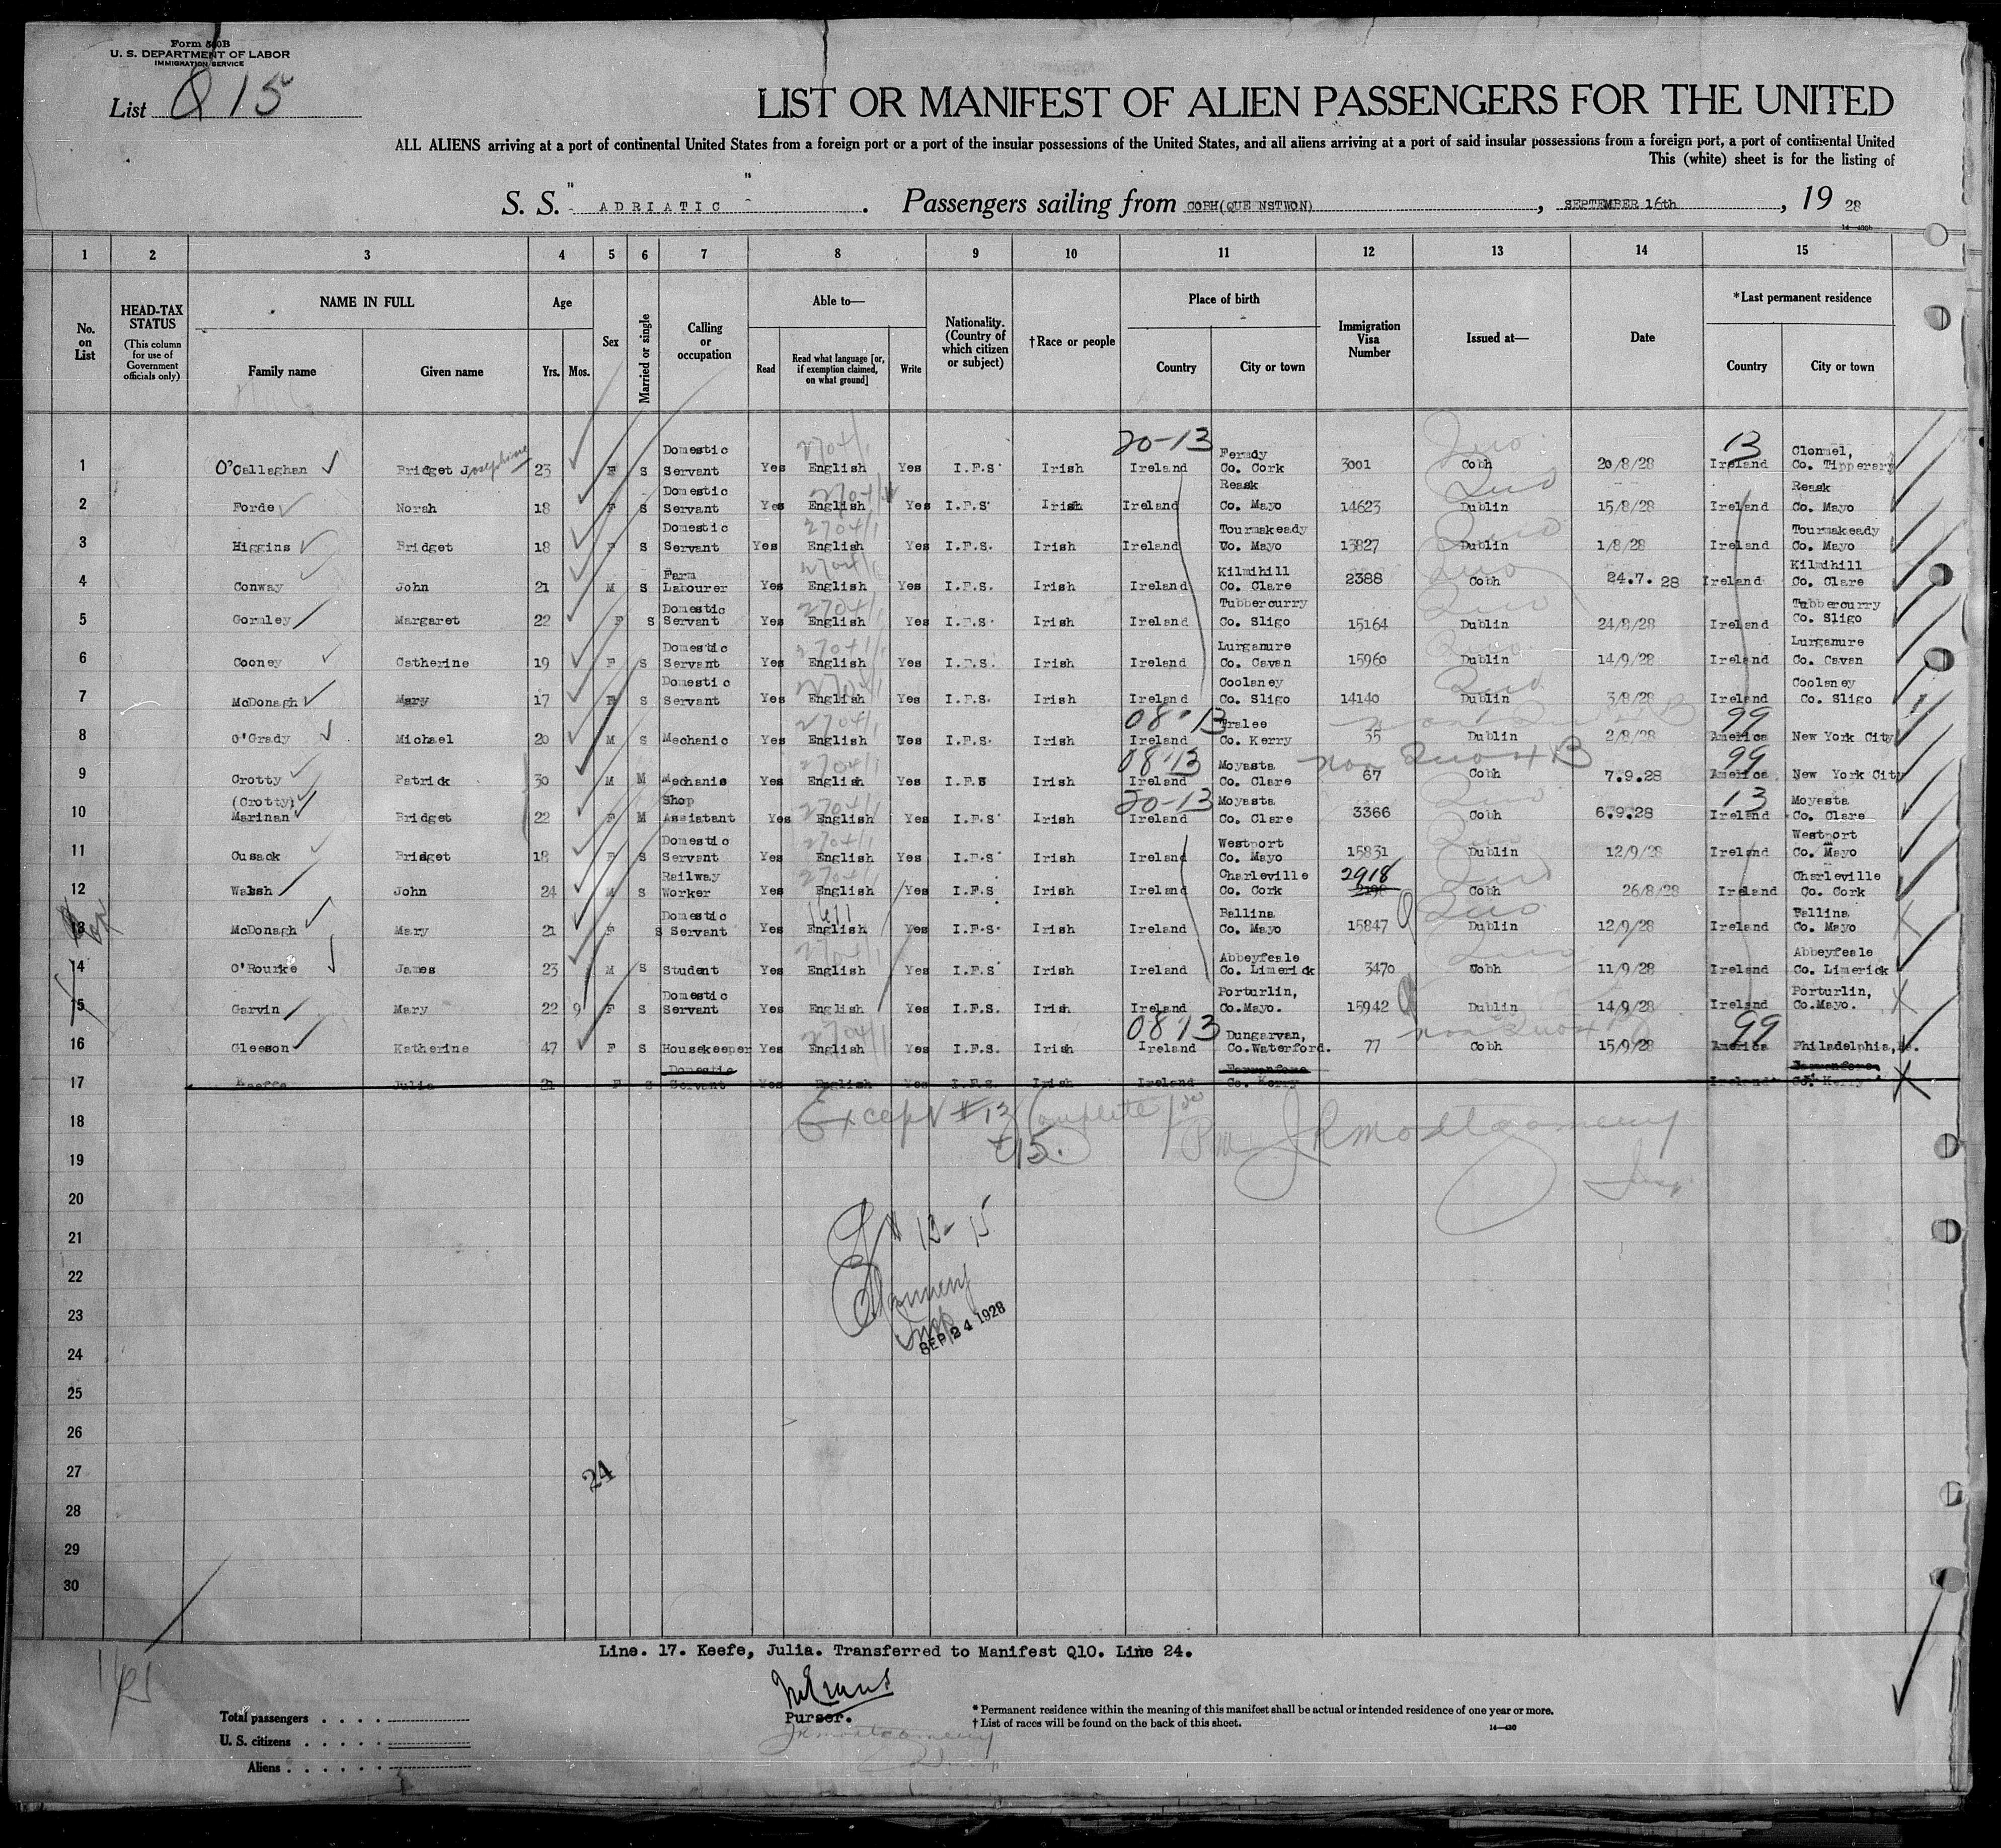 Form 500B
U. S. DEPARTMENT OF LABOR
IMMIGRATION SERVICE
List Q 15
LIST OR MANIFEST OF ALIEN PASSENGERS FOR THE UNITED
ALL ALIENS arriving at a port of continental United States from a foreign port or a port of the insular possessions of the United States, and all aliens arriving at a port of said insular possessions from a foreign port, a port of continental United
This (white) sheet is for the listing of
S. S. " ADRIATIC " . Passengers sailing from COBH(QUEENSTWON) , SEPTEMBER 16th , 19 28
1 2 3 4 5 6 7 8 9 10 11 12 13 14 15
No. on List
HEAD-TAX STATUS
(This column for use of Government officials only)
NAME IN FULL
Family name Given name
Age
Yrs. Mos.
Sex
Married or single
Calling or occupation
Able to—
Read Read what language [or, if exemption claimed, on what ground] Write
Nationality. (Country of which citizen or subject)
†Race or people
Place of birth
Country City or town
Immigration Visa Number
Issued at—
Date
*Last permanent residence
Country City or town
1 O'Callaghan Bridget Josephine 23 F S Domestic Servant Yes English 2704/1 Yes I.F.S. Irish 20-13 Ireland Fermoy Co. Cork 3001 Quo Cobh 20/8/28 13 Ireland Clonmel, Co. Tipperary
2 Forde Norah 18 F S Domestic Servant Yes English Yes I.F.S. Irish Ireland Reask Co. Mayo 14623 Quo Dublin 15/8/28 Ireland Reask Co. Mayo
3 Higgins Bridget 18 F S Domestic Servant Yes English 2704/1 Yes I.F.S. Irish Ireland Tourmakeady Co. Mayo 13827 Quo Dublin 1/8/28 Ireland Tourmakeady Co. Mayo
4 Conway John 21 M S Farm Labourer Yes English 2704/1 Yes I.F.S. Irish Ireland Kilmihill Co. Clare 2388 Quo Cobh 24.7.28 Ireland Kilmihill Co. Clare
5 Gormley Margaret 22 F S Domestic Servant Yes English 2704/1 Yes I.F.S. Irish Ireland Tubbercurry Co. Sligo 15164 Quo Dublin 24/8/28 Ireland Tubbercurry Co. Sligo
6 Cooney Catherine 19 F S Domestic Servant Yes English 2704/1 Yes I.F.S. Irish Ireland Lurganure Co. Cavan 15960 Quo Dublin 14/9/28 Ireland Lurganure Co. Cavan
7 McDonagh Mary 17 F S Domestic Servant Yes English 2704/1 Yes I.F.S. Irish Ireland Coolaney Co. Sligo 14140 Quo Dublin 3/8/28 Ireland Coolaney Co. Sligo
8 O'Grady Michael 20 M S Mechanic Yes English 2704/1 Yes I.F.S. Irish 08-13 Ireland Tralee Co. Kerry 35 Dublin 2/8/28 99 America New York City
9 Crotty Patrick 30 M M Mechanic Yes English 2704/1 Yes I.F.S Irish 08-13 Ireland Moyasta Co. Clare 67 non Quo Cobh 7.9.28 99 America New York City
10 (Crotty) Marinan Bridget 22 F M Shop Assistant Yes English 2704/1 Yes I.F.S. Irish 20-13 Ireland Moyasta Co. Clare 3366 Quo Cobh 6.9.28 13 Ireland Moyasta Co. Clare
11 Cusack Bridget 18 F S Domestic Servant Yes English 2704/1 Yes I.F.S Irish Ireland Westport Co. Mayo 15831 Quo Dublin 12/9/28 Ireland Westport Co. Mayo
12 Walsh John 24 M S Railway Worker Yes English 2704/1 Yes I.F.S Irish Ireland Charleville Co. Cork 2918 2198 Quo Cobh 26/8/28 Ireland Charleville Co. Cork
13 McDonagh Mary 21 F S Domestic Servant Yes English Yes I.F.S. Irish Ireland Ballina Co. Mayo 15847 Quo Dublin 12/9/28 Ireland Ballina Co. Mayo
14 O'Rourke James 23 M S Student Yes English 2704/1 Yes I.F.S Irish Ireland Abbeyfeale Co. Limerick 3470 Quo Cobh 11/9/28 Ireland Abbeyfeale Co. Limerick
15 Garvin Mary 22 9 F S Domestic Servant Yes English Yes I.F.S. Irish Ireland Porturlin, Co.Mayo. 15942 Dublin 14/9/28 Ireland Porturlin, Co.Mayo.
16 Gleeson Katherine 47 F S Housekeeper Yes English 2704/1 Yes I.F.S. Irish 08 13 Ireland Dungarvan, Co.Waterford. 77 non Quo Cobh 15/9/28 99 America Philadelphia,
17 Keeffe Julia 21 F S Domestic Servant Yes English Yes I.F.S. Irish Ireland Farranfore Co. Kerry Ireland Farranfore Co. Kerry
18 Except #13 Complete
19 & 15. JRMontgomery
20 Insp
21 # 13- 15
22
23 Insp SEP 24 1928
24
25
26
27 24
28
29
30
Line. 17. Keefe, Julia. Transferred to Manifest Q10. Line 24.
Purser.
JRMontgomery
Total passengers . . . .
U. S. citizens . . . . .
Aliens . . . . . .
* Permanent residence within the meaning of this manifest shall be actual or intended residence of one year or more.
† List of races will be found on the back of this sheet.
14—430